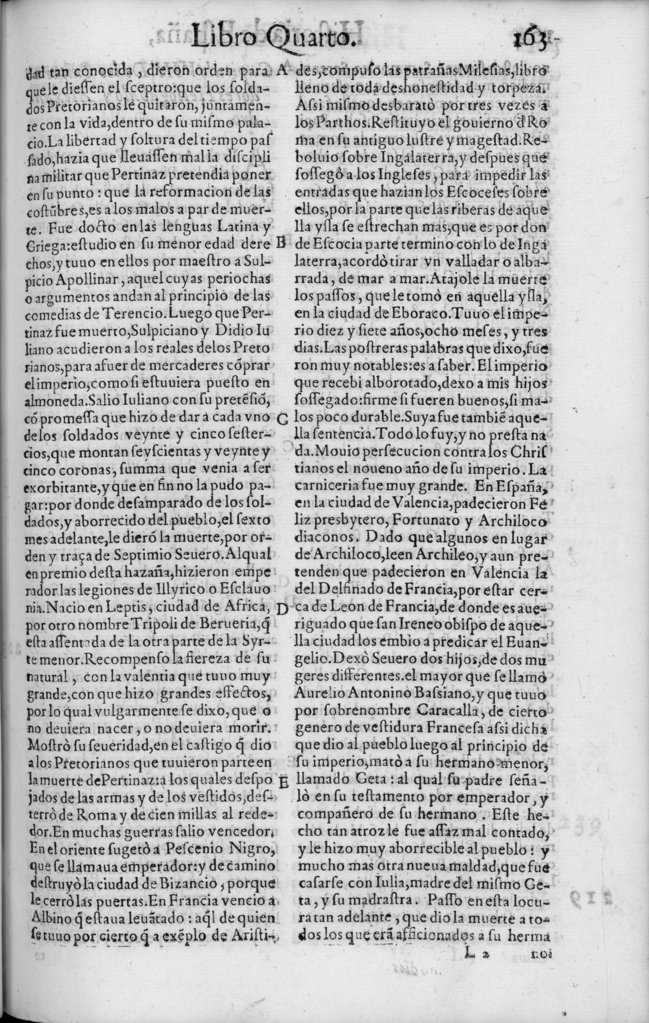 Libro Quarto. 163
dad tan conocida, dieron orden para
que le diessen el sceptro: que los solda-
dos Pretorianos le quitaron, juntamen-
te con la vida, dentro de su mismo pala-
cio. La libertad y soltura del tiempo pas
sado, hazia que lleuassen mal la discipli
na militar que Pertinaz pretendia poner
en su punto: que la reformacion de las
costũbres, es a los malos a par de muer-
te. Fue docto en las lenguas Latina y
Griega: estudio en su menor edad dere
chos, y tuuo en ellos por maestro a Sul-
picio Apollinar, aquel cuyas periochas
o argumentos andan al principio de las
comedias de Terencio. Luego que Per-
tinaz fue muerto, Sulpiciano y Didio Iu
liano acudieron a los reales delos Preto
rianos, para afuer de mercaderes cõprar
el imperio, como si estuuiera puesto en
almoneda. Salio Iuliano con su pretẽsiõ,
cõ promessa que hizo de dar a cada vno
de los soldados veynte y cinco sester-
cios, que montan seyscientas y veynte y
cinco coronas, summa que venia a ser
exorbitante, y que en fin no la pudo pa-
gar: por donde desamparado de los sol-
dados, y aborrecido del pueblo, el sexto
mes adelante, le dierõ la muerte, por or-
den y traça de Septimio Seuero. Alqual
en premio desta hazaña, hizieron empe
rador las legiones de Illyrico o Esclauo
nia. Nacio en Leptis, ciudad de Africa,
por otro nombre Tripoli de Berueria, q̃
esta assentada de la otra parte de la Syr-
te menor. Recompenso la fiereza de su
natural, con la valentia que tuuo muy
grande, con que hizo grandes effectos,
por lo qual vulgarmente se dixo, que o
no deuiera nacer, o no deuiera morir.
Mostrò su seueridad, en el castigo q̃ dio
a los Pretorianos que tuuieron parte en
la muerte de Pertinaz: a los quales despo
jados de las armas y de los vestidos, des-
terrò de Roma y de cien millas al rede-
dor. En muchas guerras salio vencedor.
En el oriente sugetò a Pescenio Nigro,
que se llamaua emperador: y de camino
destruyò la ciudad de Bizancio, porque
le cerrò las puertas. En Francia vencio a
Albino q̃ estaua leuãtado: aq̃l de quien
se tuuo por cierto q̃ a exẽplo de Aristi-
A
B
C
D
E
des, compuso las patrañas Milesias, libro
lleno de toda deshonestidad y torpeza.
Assi mismo desbaratò por tres vezes a
los Parthos. Restituyo el gouierno d̃ Ro
ma en su antiguo lustre y magestad. Re-
boluio sobre Ingalaterra, y despues que
sossegò a los Ingleses, para impedir las
entradas que hazian los Escoceses sobre
ellos, por la parte que las riberas de aque
lla ysla se estrechan mas, que es por don
de Escocia parte termino con lo de Inga
laterra, acordò tirar vn valladar o alba-
rrada, de mar a mar. Atajole la muerte
los passos, que le tomò en aquella ysla,
en la ciudad de Eboraco. Tuuo el impe-
rio diez y siete años, ocho meses, y tres
dias. Las postreras palabras que dixo, fue
ron muy notables: es a saber. El imperio
que recebi alborotado, dexo a mis hijos
sossegado: firme si fueren buenos, si ma-
los poco durable. Suya fue tambiẽ aque-
lla sentencia. Todo lo fuy, y no presta na
da. Mouio persecucion contra los Chris
tianos el noueno año de su imperio. La
carniceria fue muy grande. En España,
en la ciudad de Valencia, padecieron Fe
liz presbytero, Fortunato y Archiloco
diaconos. Dado que algunos en lugar
de Archiloco, leen Archileo, y aun pre-
tenden que padecieron en Valencia la
del Delfinado de Francia, por estar cer-
ca de Leon de Francia, de donde es aue-
riguado que san Ireneo obispo de aque-
lla ciudad los embio a predicar el Euan-
gelio. Dexò Seuero dos hijos, de dos mu
geres differentes. el mayor que se llamò
Aurelio Antonino Bassiano, y que tuuo
por sobrenombre Caracalla, de cierto
genero de vestidura Francesa assi dicha
que dio al pueblo luego al principio de
su imperio, matò a su hermano menor,
llamado Geta: al qual su padre seña-
lò en su testamento por emperador, y
compañero de su hermano. Este he-
cho tan atroz le fue assaz mal contado,
y le hizo muy aborrecible al pueblo: y
mucho mas otra nueua maldad, que fue
casarse con Iulia, madre del mismo Ge-
ta, y su madrastra. Passo en esta locu-
ra tan adelante, que dio la muerte a to-
dos los que erã afficionados a su herma
L 2